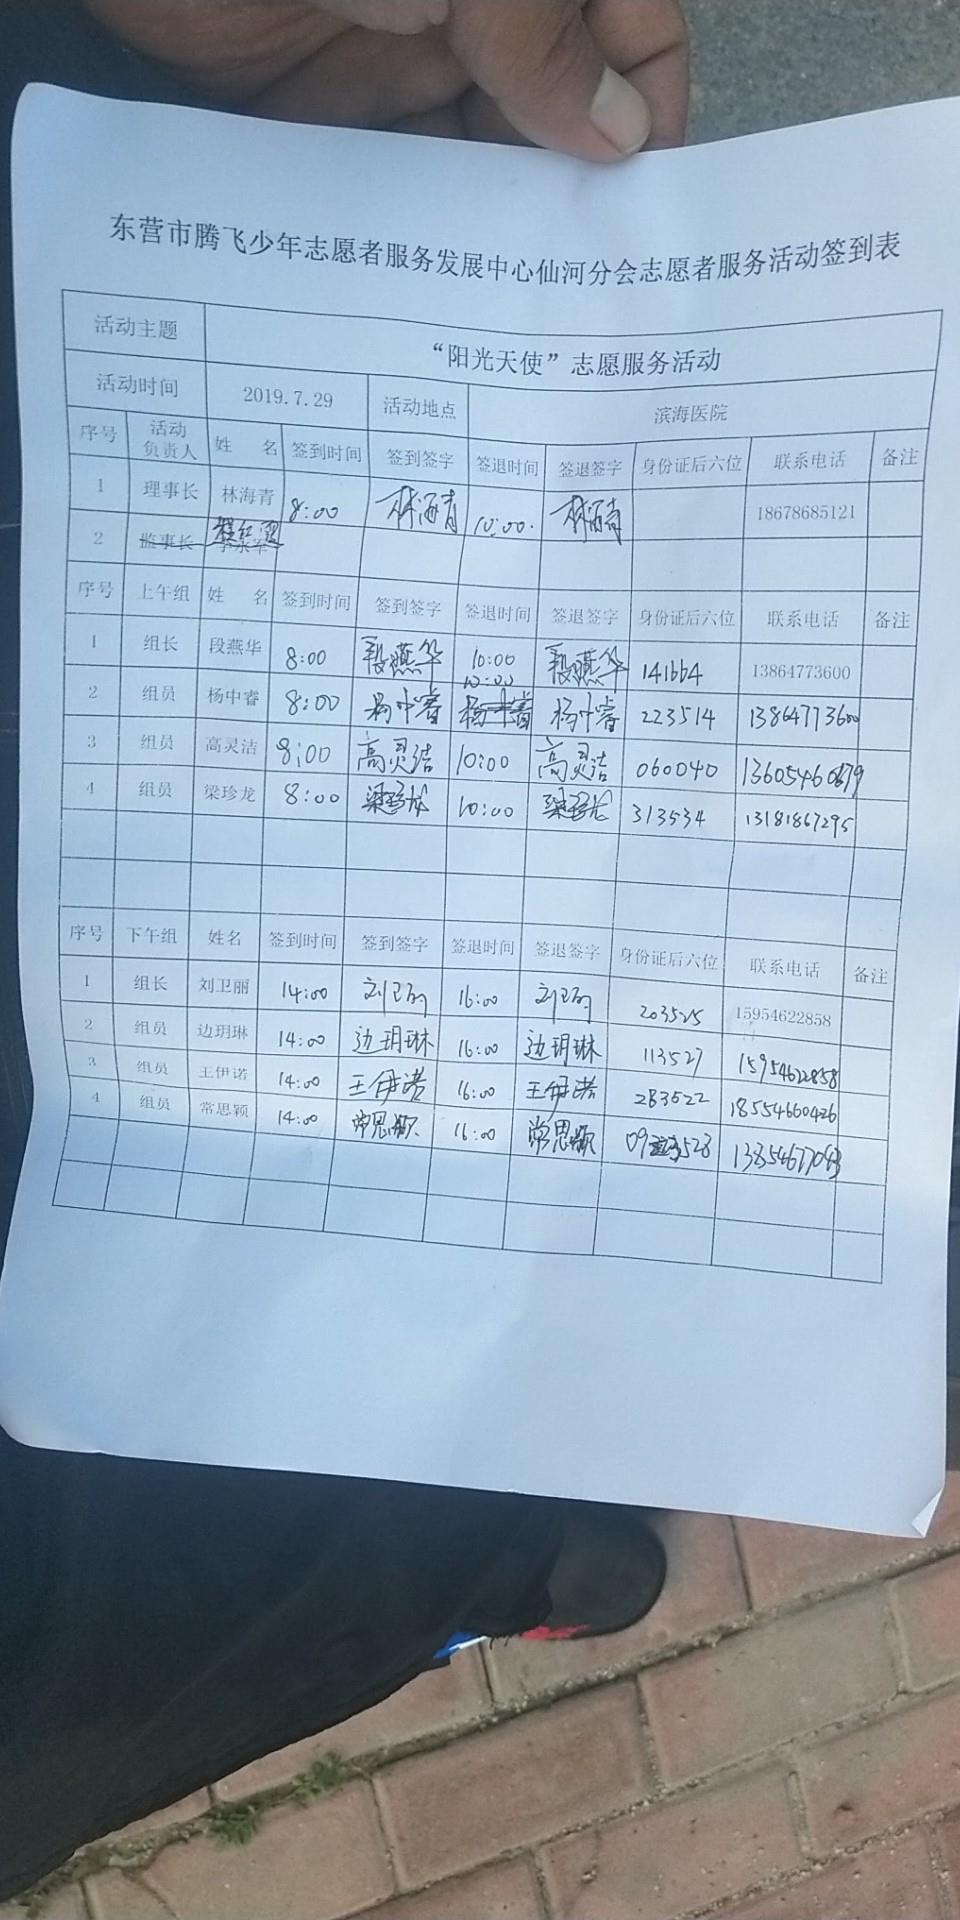 东营市腾飞少年志愿者服务发展中心仙河分会志愿者服务活动签到表
活动主题 “阳光天使”志愿服务活动
活动时间 2019.7.29 活动地点 滨海医院
序号 活动负责人 姓 名 签到时间 签到签字 签退时间 签退签字 身份证后六位 联系电话 备注
1 理事长 林海青 8:00 林海青 10:00. 林海青 18678685121
2 监事长
序号 上午组 姓 名 签到时间 签到签字 签退时间 签退签字 身份证后六位 联系电话 备注
1 组长 段燕华 8:00 段燕华 10:00 段燕华 141664 13864773600
2 组员 杨中睿 8:00 杨中睿 10:00 杨中睿 杨中睿 223514 13864773600
3 组员 高灵洁 8:00 高灵洁 10:00 高灵洁 060040
4 组员 梁珍龙 8:00 梁珍龙 10:00 梁珍龙 313534 13181867295
序号 下午组 姓名 签到时间 签到签字 签退时间 签退签字 身份证后六位 联系电话 备注
1 组长 刘卫丽 14:00 刘卫丽 16:00 刘卫丽 203525 15954622858
2 组员 边玥琳 14:00 边玥琳 16:00 边玥琳 113527 15954622858
3 组员 王伊诺 14:00 王伊诺 16:00 王伊诺 283522 18554660426
4 组员 常思颖 14:00 常思颖 16:00 常思颖